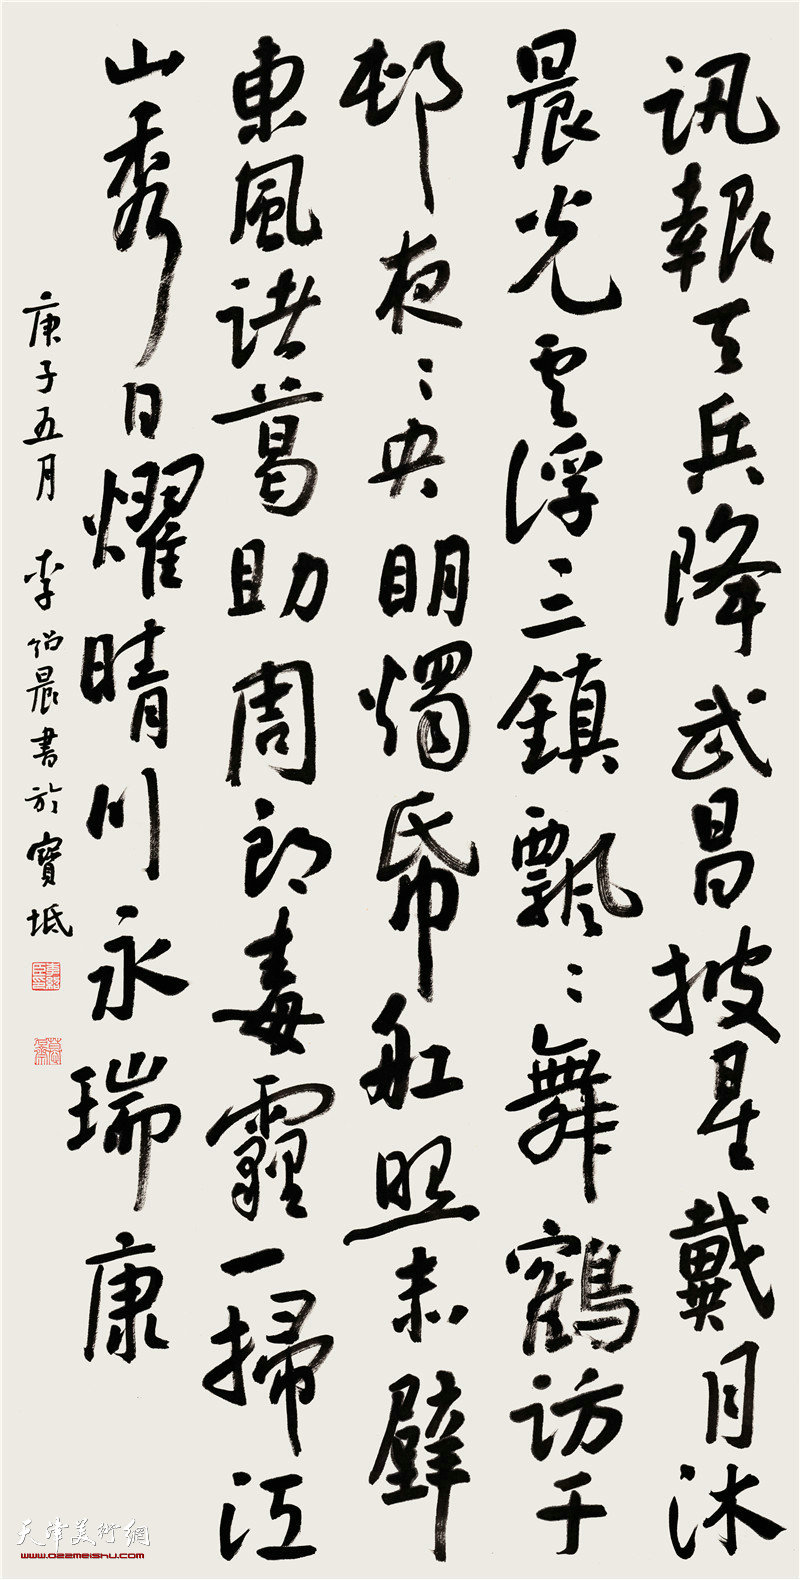 訊報天兵降武昌披星戴月沐
晨光雲浮三鎮飄〻舞鶴訪千
邨夜〻央明燭帋舡照赤壁
東風諸葛助周郎毒霾一掃江
山秀日耀晴川永瑞康
庚子五月 李 晨書於寶坻
天津美術網
www.022meishu.com